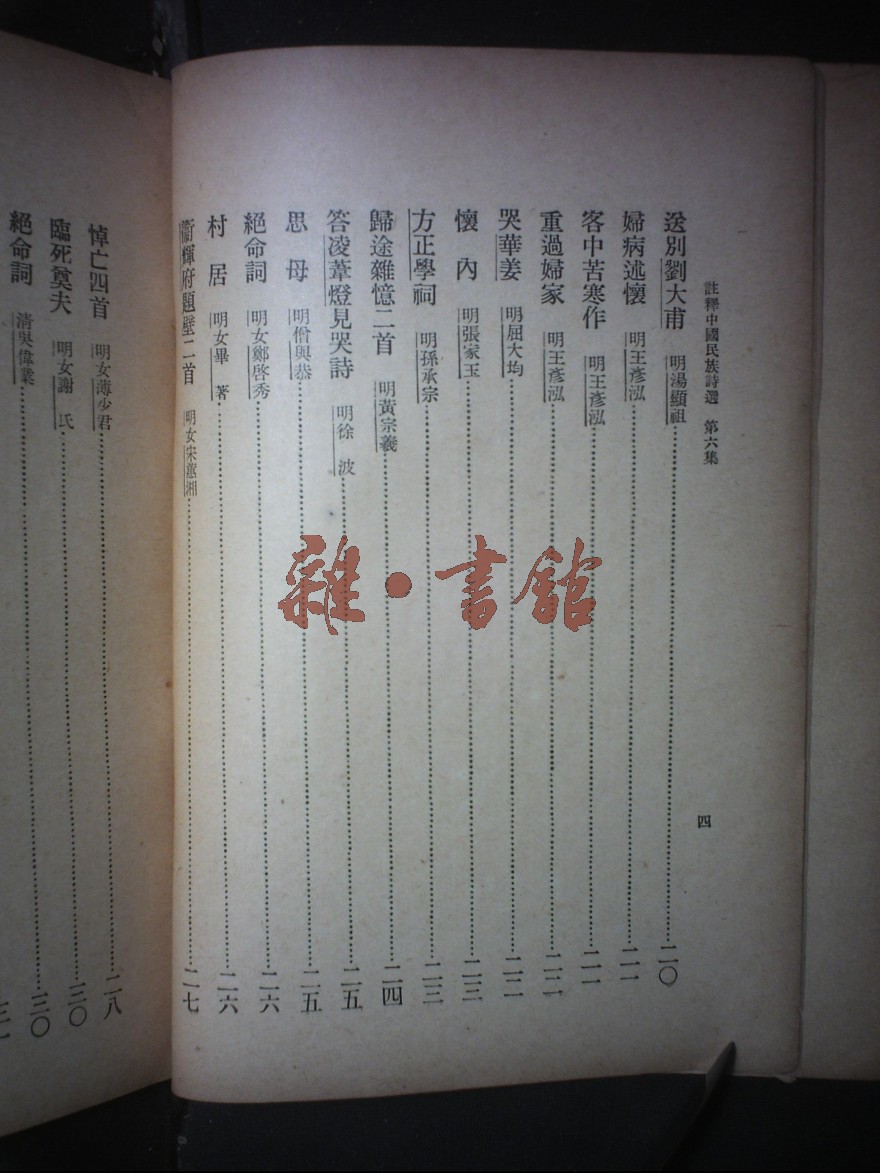 註釋中國民族詩選 第六集
四
送別劉大甫 明湯顯祖 二〇
婦病述懷 明王彥泓 二一
客中苦寒作 明王彥泓 二一
重過婦家 明王彥泓 二二
哭華姜 明屈大均 二二
懷內 明張家玉 二三
方正學祠 明孫承宗 二三
歸途雜憶二首 明黃宗羲 二四
答凌葦燈見哭詩 明徐波 二五
思母 明僧與恭 二五
絕命詞 明女鄭啓秀 二六
村居 明女畢著 二六
衞輝府題壁二首 明女宋蕙湘 二七
悼亡四首 明女薄少君 二八
臨死奠夫 明女謝氏 三〇
絕命詞 清吳偉業 三〇
雜·書館